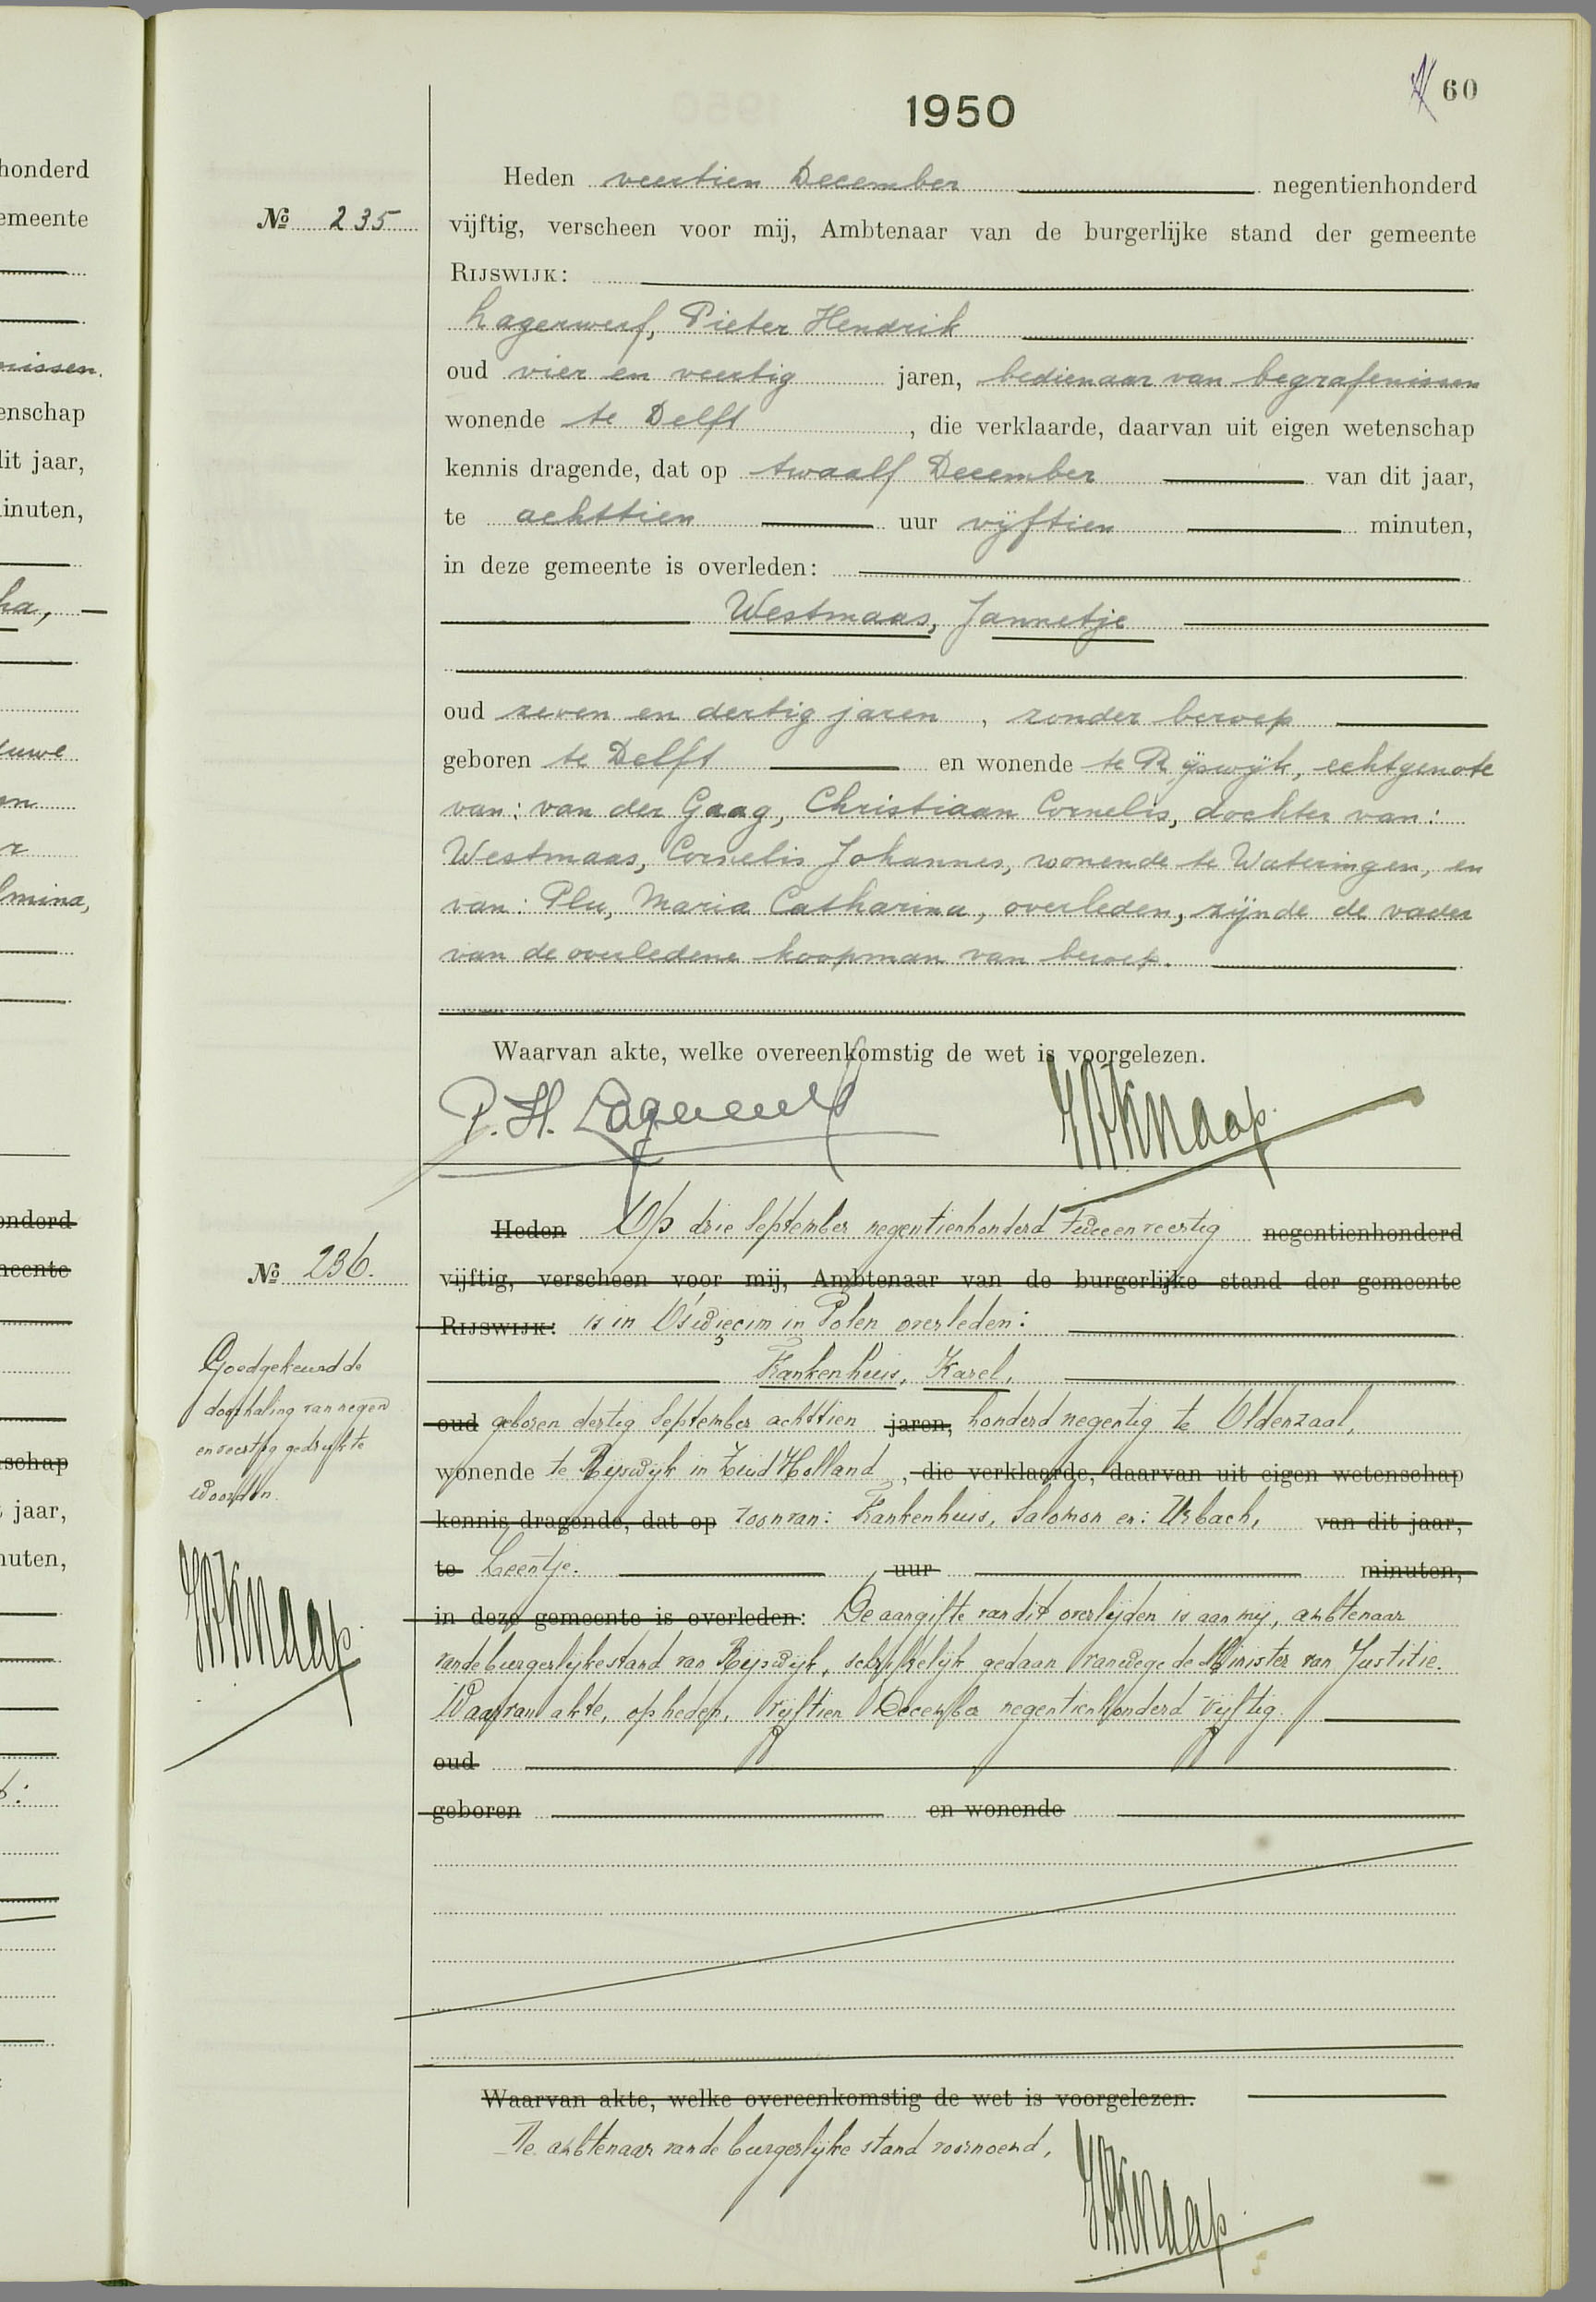 60
1950
Heden veertien December negentienhonderd
№ 235
vijftig, verscheen voor mij, Ambtenaar van de burgerlijke stand der gemeente
RIJSWIJK:
Lagerwerf, Pieter Hendrik
oud vier en veertig jaren, bedienaar van begrafenissen
wonende te Delft, die verklaarde, daarvan uit eigen wetenschap
kennis dragende, dat op twaalf December van dit jaar,
te achttien uur vijftien minuten,
in deze gemeente is overleden:
Westmaas, Jannetje
oud zeven en dertig jaren, zonder beroep
geboren te Delft en wonende te Rijswijk, echtgenote
van: van der Gaag, Christiaan Cornelis, dochter van:
Westmaas, Cornelis Johannes, wonende te Wateringen, en
van: Plu, Maria Catharina, overleden, zijnde de vader
van de overledene koopman van beroep.
Waarvan akte, welke overeenkomstig de wet is voorgelezen.
P. H. Lagerwerf
Knaap
Heden Op drie September negentienhonderd tweeenveertig negentienhonderd
№ 236.
vijftig, verscheen voor mij, Ambtenaar van de burgerlijke stand der gemeente
RIJSWIJK: is in Oświęcim in Polen overleden:
Frankenhuis, Karel,
oud geboren dertig September achttien jaren, honderd negentig te Oldenzaal,
wonende te Rijswijk in Zuid Holland, die verklaarde, daarvan uit eigen wetenschap
kennis dragende, dat op zoon van: Frankenhuis, Salomon en: Urbach, van dit jaar,
te Leentje. uur minuten,
in deze gemeente is overleden: De aangifte van dit overlijden is aan mij, ambtenaar
van de burgerlijke stand van Rijswijk, schriftelijk gedaan vanwege de Minister van Justitie.
Waarvan akte, op heden, vijftien December negentienhonderd vijftig.
oud
geboren en wonende
Goedgekeurd de
doorhaling van negen
en veertig gedrukte
woorden.
Knaap
Waarvan akte, welke overeenkomstig de wet is voorgelezen.
De ambtenaar van de burgerlijke stand voornoemd,
Knaap
honderd
emeente
nissen.
enschap
dit jaar,
inuten,
ha,
euwe
en
r
lmina,
onderd
neente
schap
jaar,
nuten,